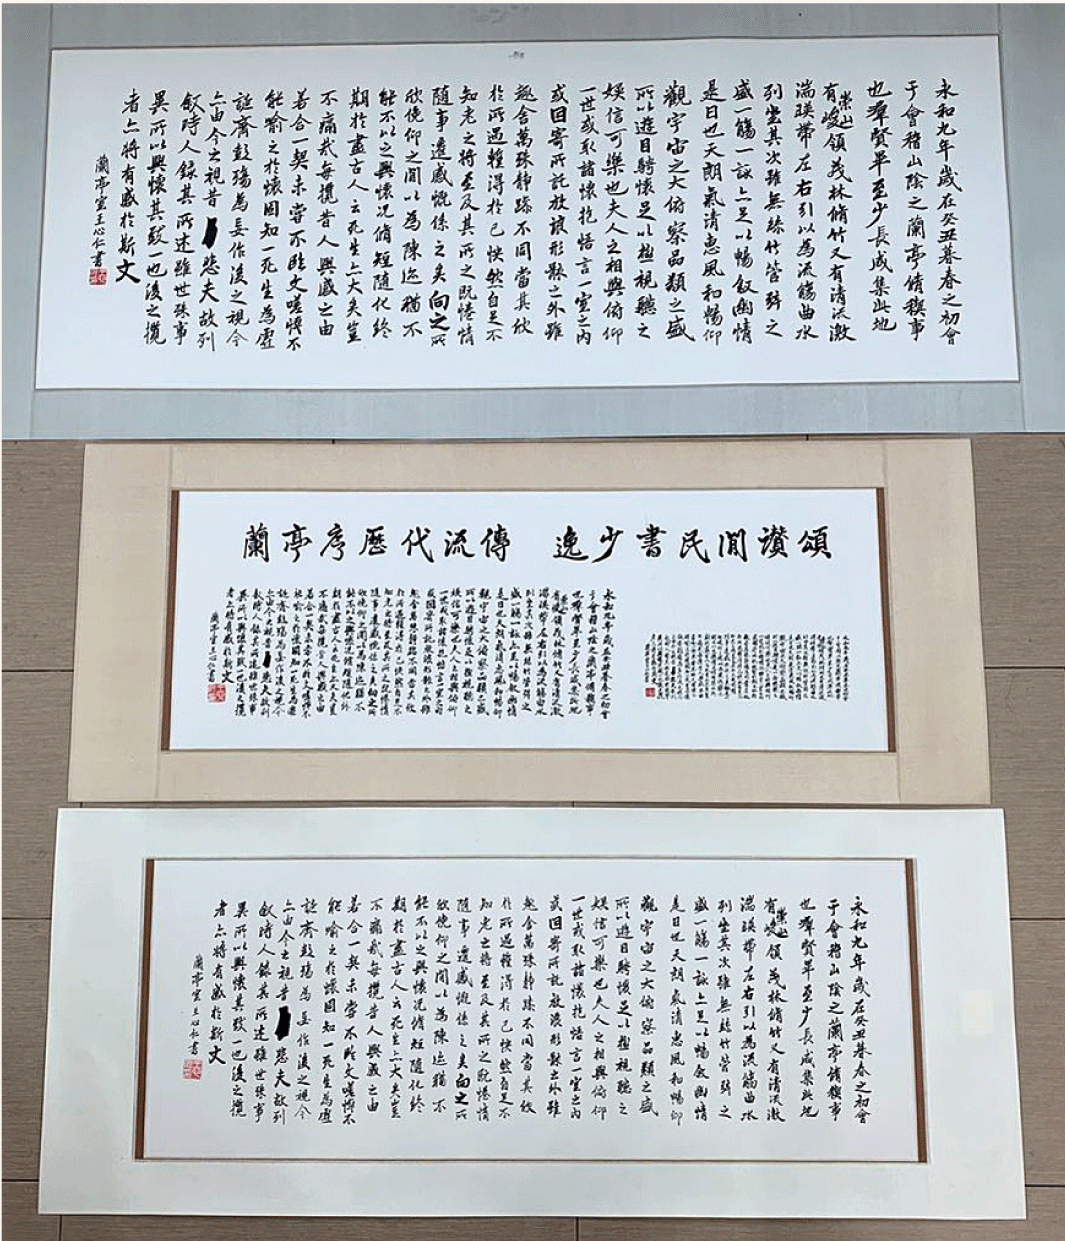 永和九年歲在癸丑暮春之初會
于會稽山陰之蘭亭脩稧事
也羣賢畢至少長咸集此地
有崇山峻領茂林脩竹又有清流激
湍暎帶左右引以為流觴曲水
列坐其次雖無絲竹管弦之
盛一觴一詠亦足以暢敘幽情
是日也天朗氣清惠風和暢仰
觀宇宙之大俯察品類之盛
所以遊目騁懷足以極視聽之
娛信可樂也夫人之相與俯仰
一世或取諸懷抱悟言一室之內
或因寄所託放浪形骸之外雖
趣舍萬殊靜躁不同當其欣
於所遇暫得於己快然自足不
知老之將至及其所之既惓情
隨事遷感慨係之矣向之所
欣俛仰之間以為陳迹猶不
能不以之興懷況脩短隨化終
期於盡古人云死生亦大矣豈
不痛哉每攬昔人興感之由
若合一契未嘗不臨文嗟悼不
能喻之於懷固知一死生為虛
誕齊彭殤為妄作後之視今
亦由今之視昔悲夫故列
敘時人錄其所述雖世殊事
異所以興懷其致一也後之攬
者亦將有感於斯文
蘭亭室王心仁書
蘭亭序歷代流傳 逸少書民間讚頌
永和九年歲在癸丑暮春之初會
于會稽山陰之蘭亭脩稧事
也羣賢畢至少長咸集此地
有崇山峻領茂林脩竹又有清流激
湍暎帶左右引以為流觴曲水
列坐其次雖無絲竹管弦之
盛一觴一詠亦足以暢敘幽情
是日也天朗氣清惠風和暢仰
觀宇宙之大俯察品類之盛
所以遊目騁懷足以極視聽之
娛信可樂也夫人之相與俯仰
一世或取諸懷抱悟言一室之內
或因寄所託放浪形骸之外雖
趣舍萬殊靜躁不同當其欣
於所遇暫得於己快然自足不
知老之將至及其所之既惓情
隨事遷感慨係之矣向之所
欣俛仰之間以為陳迹猶不
能不以之興懷況脩短隨化終
期於盡古人云死生亦大矣豈
不痛哉每攬昔人興感之由
若合一契未嘗不臨文嗟悼不
能喻之於懷固知一死生為虛
誕齊彭殤為妄作後之視今
亦由今之視昔悲夫故列
敘時人錄其所述雖世殊事
異所以興懷其致一也後之攬
者亦將有感於斯文
蘭亭室王心仁書
永和九年歲在癸丑暮春之初會
于會稽山陰之蘭亭脩稧事
也羣賢畢至少長咸集此地
有崇山峻領茂林脩竹又有清流激
湍暎帶左右引以為流觴曲水
列坐其次雖無絲竹管弦之
盛一觴一詠亦足以暢敘幽情
是日也天朗氣清惠風和暢仰
觀宇宙之大俯察品類之盛
所以遊目騁懷足以極視聽之
娛信可樂也夫人之相與俯仰
一世或取諸懷抱悟言一室之內
或因寄所託放浪形骸之外雖
趣舍萬殊靜躁不同當其欣
於所遇暫得於己快然自足不
知老之將至及其所之既惓情
隨事遷感慨係之矣向之所
欣俛仰之間以為陳迹猶不
能不以之興懷況脩短隨化終
期於盡古人云死生亦大矣豈
不痛哉每攬昔人興感之由
若合一契未嘗不臨文嗟悼不
能喻之於懷固知一死生為虛
誕齊彭殤為妄作後之視今
亦由今之視昔悲夫故列
敘時人錄其所述雖世殊事
異所以興懷其致一也後之攬
者亦將有感於斯文
蘭亭室王心仁書